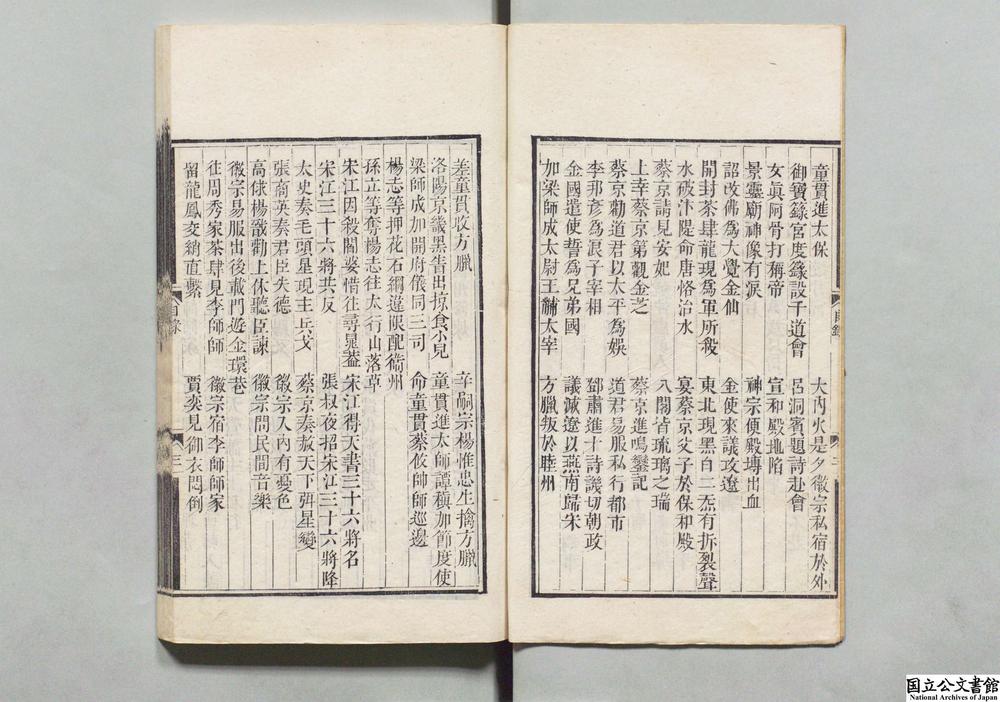 童貫進太保　大內火是夕徽宗私宿於外
御寶籙宮度籙設千道會　呂洞賓題詩赴會
女真阿骨打稱帝　宣和殿地陷
景靈廟神像有淚　神宗便殿塼出血
詔改佛爲大覺金仙　金使來議攻遼
開封茶肆龍現爲軍所殺　東北現黑白二炁有折裂聲
水破汴隄命唐恪治水　宴蔡京父子於保和殿
蔡京請見安妃　八閣皆琉璃之瑞
上幸蔡京第觀金芝　蔡京進鳴鑾記
蔡京勸道君以太平爲娛　道君易服私行都市
李邦彥爲浪子宰相　鄧肅進十詩譏切朝政
金國遣使誓爲兄弟國　議滅遼以燕南歸宋
加梁師成太尉王黼太宰　方臘叛於睦州
目錄　三
差童貫收方臘　辛嗣宗楊惟忠生擒方臘
洛陽京畿黑眚出掠食小兒　童貫進太師譚稹加節度使
梁師成加開府儀同三司　命童貫蔡攸帥師巡邊
楊志等押花石綱違限配衞州
孫立等奪楊志往太行山落草
宋江因殺閻婆惜往尋晁蓋　宋江得天書三十六將名
宋江三十六將共反　張叔夜招宋江三十六將降
太史奏毛頭星現主兵戈　蔡京奏赦天下弭星變
張商英奏君臣失德　徽宗入內有憂色
高俅楊戩勸上休聽臣諫　徽宗問民間音樂
徽宗易服出後載門遊金環巷
往周秀家茶肆見李師師　徽宗宿李師師家
留龍鳳交綃直繫　賈奕見御衣悶倒
目錄　三
国立公文書館
National Archives of Japan